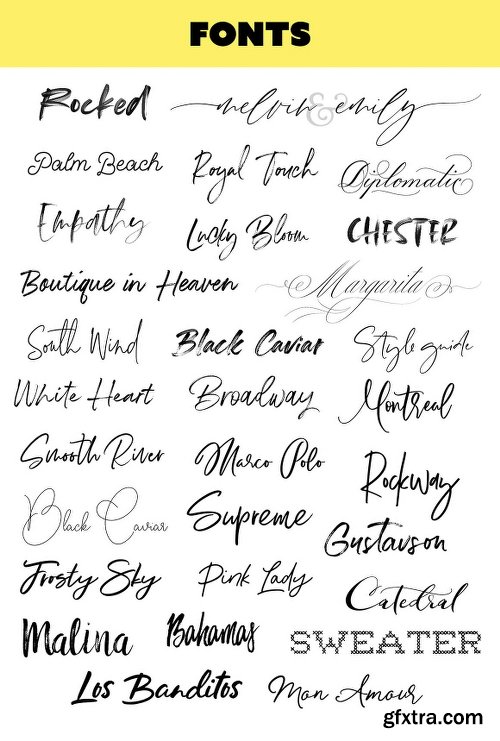 FONTS
Rocked melvin & emily
Palm Beach Royal Touch Diplomatic
Empathy Lucky Bloom CHESTER
Boutique in Heaven Margarita
South Wind Black Caviar Style guide
White Heart Broadway Montreal
Smooth River Marco Polo Rockway
Black Caviar Supreme Gustavson
Frosty Sky Pink Lady Catedral
Malina Bahamas SWEATER
Los Banditos Mon Amour
gfxtra.com